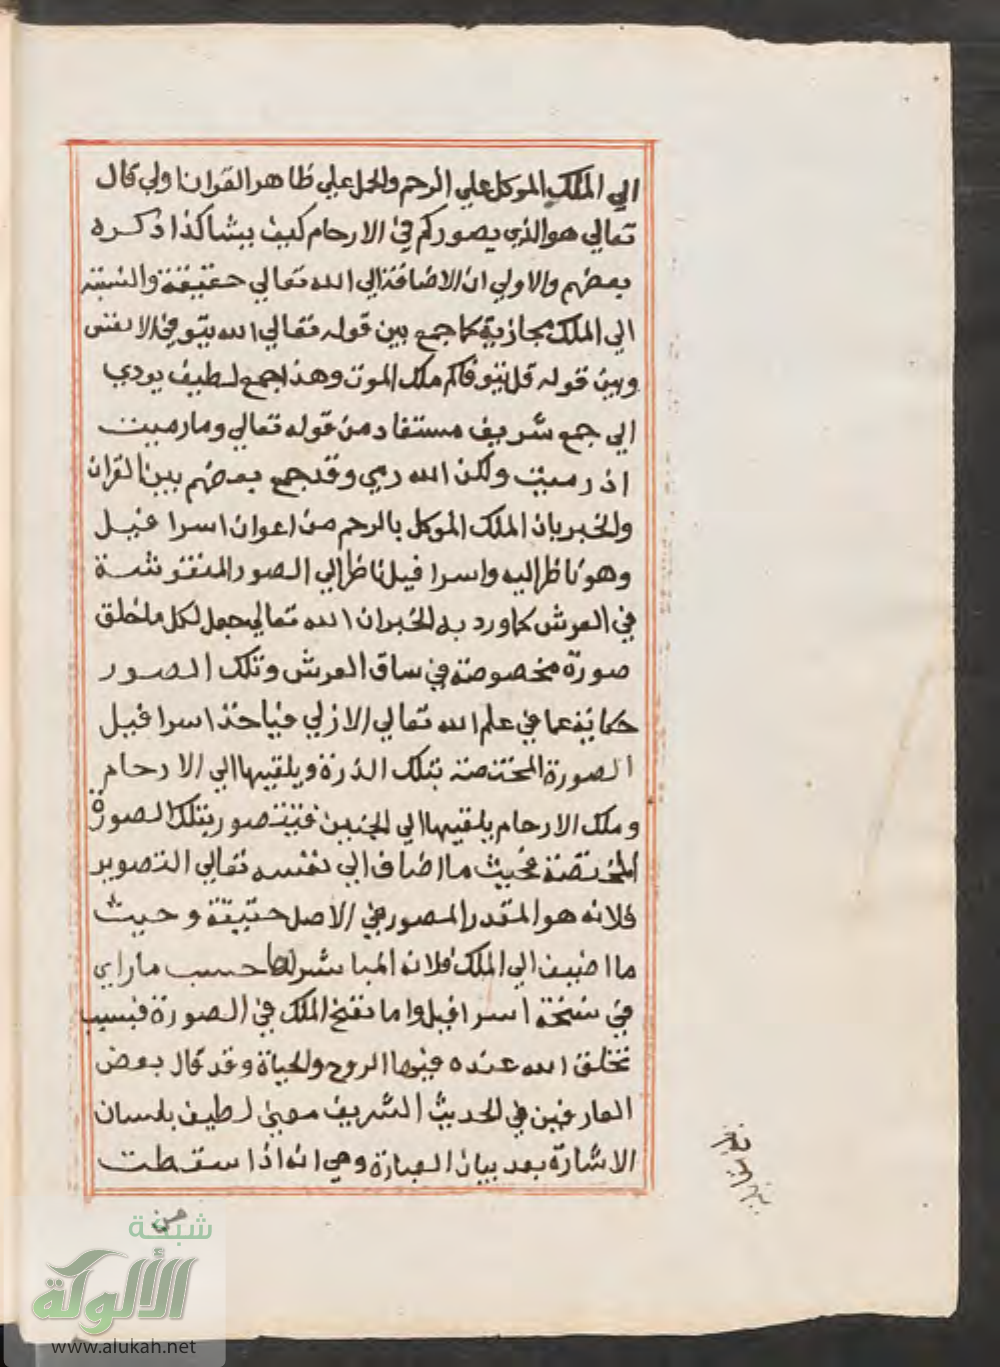 الي الملك الموكل علي الرحم والحمل علي ظاهر القران اولي قال
تعالي هو الذي يصوركم في الارحام كيف يشا كذا ذكره
بعضهم والاولي ان الاضافة الي الله تعالي حقيقة والنسبة
الي الملك مجازية كما جمع بين قوله تعالي الله يتوفي الانفس
وبين قوله قل يتوفاكم ملك الموت وهذا جمع لطيف يودي
الي جمع شريف مستفاد من قوله تعالي وما رميت
اذ رميت ولكن الله رمي وقد جمع بعضهم بين القران
والخبر بان الملك الموكل بالرحم من اعوان اسرافيل
وهو ناظر اليه واسرافيل ناظر الي الصور المنقوشة
في العرش كما ورد به الخبر ان الله تعالي جعل لكل ما خلق
صورة مخصوصة في ساق العرش وتلك الصور
حكاية عما في علم الله تعالي الازلي فياخذ اسرافيل
الصورة المختصة بتلك الذرة ويلقيها الي الارحام
وملك الارحام يلقيها الي الجنين فيتصور بتلك الصورة
المختصة فحيث ما اضاف الي نفسه تعالي التصوير
فلانه هو المقدر المصور في الاصل حقيقة وحيث
ما اضيف الي الملك فلانه المباشر لها حسب ما راي
في نسخة اسرافيل واما نفخ الملك في الصورة فبسبب
يخلق الله عنده فيها الروح والحياة وقد قال بعض
العارفين في الحديث الشريف معني لطيف بلسان
الاشارة بعد بيان العبارة وهي انه اذا سقطت
من
شبكة
الألوكة
www.alukah.net